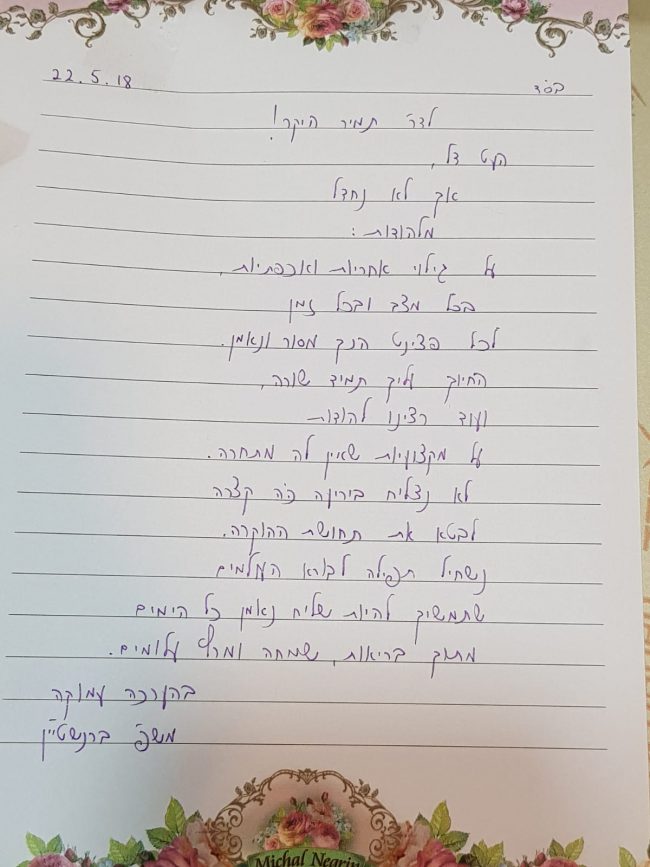 בס"ד
22.5.18
לדר' תמיר היקר!
העט דל,
אך לא נחדל
מלהודות:
על גילוי אחריות ואכפתיות,
בכל מצב ובכל זמן
לכל פציינט הנך מסור ונאמן.
החיוך עליך תמיד שורה,
ועוד רצינו להודות
על מקצועיות שאין לה מתחרה.
לא נצליח ביריעה כה קצרה
לבטא את תחושת ההוקרה.
נשחיל תפילה לבורא העולמים
שתמשיך להיות שליח נאמן כל הימים
מתוך בריאות, שמחה ומרץ עלומים.
בהערכה עמוקה
משפ' ברנשטיין
Michal Negrin